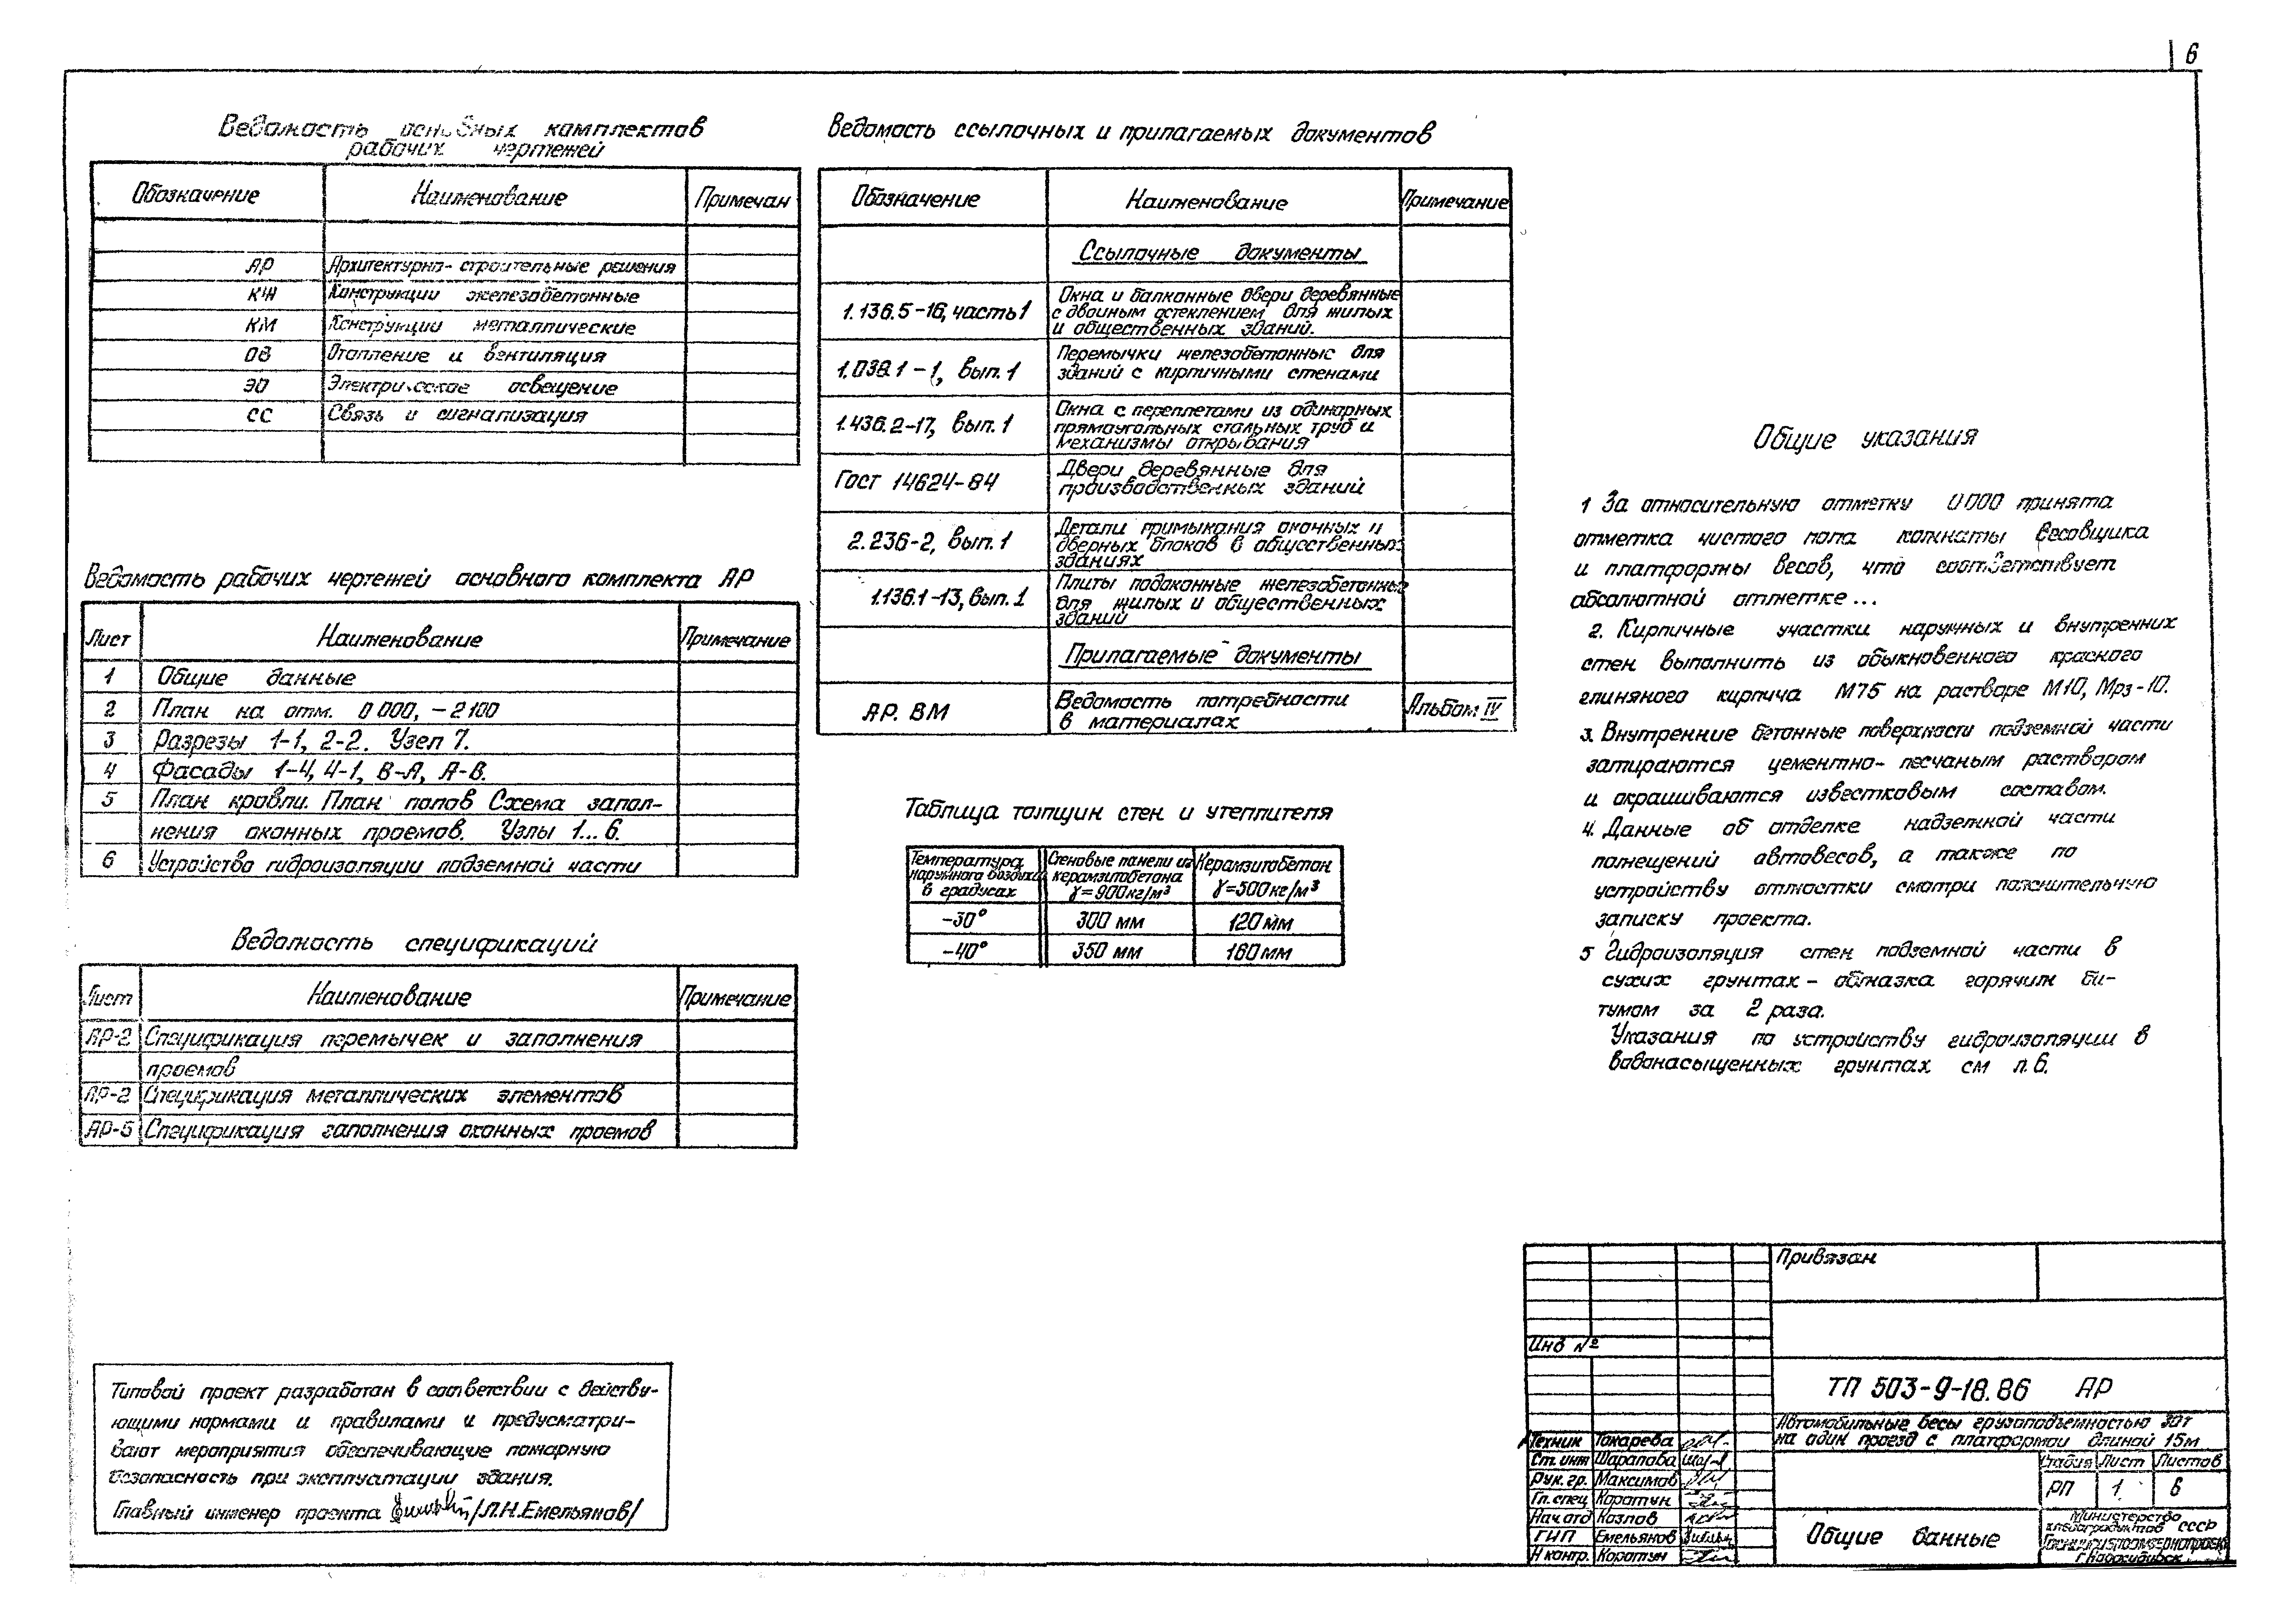 6
Ведомость основных комплектов
рабочих чертежей
Обозначение Наименование Примечан
АР Архитектурно-строительные решения
КЖ Конструкции железобетонные
КМ Конструкции металлические
ОВ Отопление и вентиляция
ЭО Электрическое освещение
СС Связь и сигнализация
Ведомость рабочих чертежей основного комплекта АР
Лист Наименование Примечание
1 Общие данные
2 План на отм. 0000, -2100
3 Разрезы 1-1, 2-2. Узел 7.
4 Фасады 1-4, 4-1, В-А, А-В.
5 План кровли. План полов Схема запол-
нения оконных проемов. Узлы 1...6.
6 Устройство гидроизоляции подземной части
Ведомость спецификаций
Лист Наименование Примечание
АР-2 Спецификация перемычек и заполнения
проемов
АР-2 Спецификация металлических элементов
АР-5 Спецификация заполнения оконных проемов
Типовой проект разработан в соответствии с действу-
ющими нормами и правилами и предусматри-
вают мероприятия обеспечивающие пожарную
безопасность при эксплуатации здания.
Главный инженер проекта /Л.Н.Емельянов/
Ведомость ссылочных и прилагаемых документов
Обозначение Наименование Примечание
Ссылочные документы
1.136.5-16, часть 1 Окна и балконные двери деревянные
с двойным остеклением для жилых
и общественных зданий.
1.038.1-1, вып.1 Перемычки железобетонные для
зданий с кирпичными стенами
1.436.2-17, вып.1 Окна с переплетами из одинарных
прямоугольных стальных труб и
механизмы открывания
Гост 14624-84 Двери деревянные для
производственных зданий
2.236-2, вып.1 Детали примыкания оконных и
дверных блоков в общественных
зданиях
1.136.1-13, вып.1 Плиты подоконные железобетонные
для жилых и общественных
зданий
Прилагаемые документы
АР. ВМ Ведомость потребности
в материалах Альбом IV
Таблица толщин стен и утеплителя
Температура
наружного воздуха
в градусах
Стеновые панели из
керамзитобетона
γ=900кг/м³
Керамзитобетон
γ=500кг/м³
-30° 300 мм 120 мм
-40° 350 мм 160 мм
Общие указания
1 За относительную отметку 0000 принята
отметка чистого пола комнаты весовщика
и платформы весов, что соответствует
абсолютной отметке...
2. Кирпичные участки наружных и внутренних
стен выполнить из обыкновенного красного
глиняного кирпича М75 на растворе М10, Мрз-10.
3. Внутренние бетонные поверхности подземной части
затираются цементно-песчаным раствором
и окрашиваются известковым составом.
4. Данные об отделке надземной части
помещений автовесов, а также по
устройству отмостки смотри пояснительную
записку проекта.
5 Гидроизоляция стен подземной части в
сухих грунтах - обмазка горячим би-
тумом за 2 раза.
Указания по устройству гидроизоляции в
водонасыщенных грунтах см л.6.
Привязан
Инв №
ТП 503-9-18.86 АР
Автомобильные весы грузоподъемностью 30т
на один проезд с платформой длиной 15м
Техник Токарева
Ст. инж Шарапова
Рук. гр. Максимов
Гл. спец Коротун
Нач отд Козлов
ГИП Емельянов
Н контр. Коротун
Стадия Лист Листов
РП 1 6
Общие данные
Министерство
хлебопродуктов СССР
г. Новосибирск